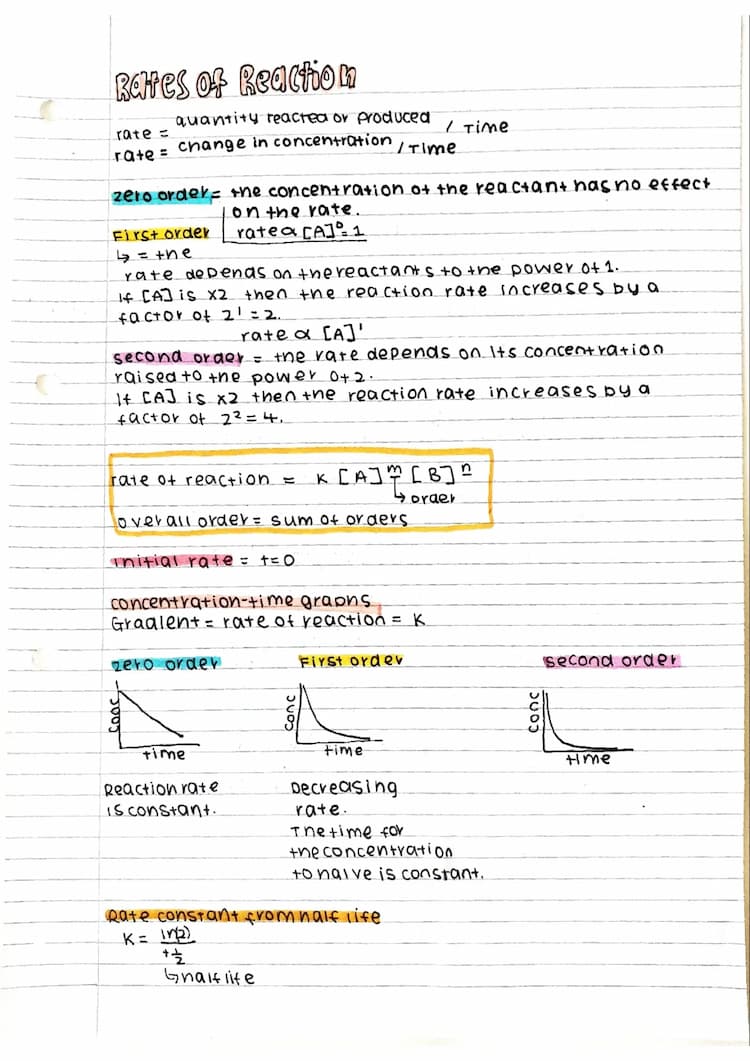 Rates of Reaction
rate = quantity reacted or produced / Time
rate = change in concentration / Time
zero order = the concentration of the reactant has no effect
on the rate.
First order
rate α [A]⁰ = 1
↳ = the
rate depends on the reactants to the power of 1.
If [A] is x2 then the reaction rate increases by a
factor of 2¹ = 2.
rate α [A]¹
second order = the rate depends on its concentration
raised to the power of 2.
If [A] is x2 then the reaction rate increases by a
factor of 2² = 4.
rate of reaction = K [A]ᵐ [B]ⁿ
↳ order
overall order = sum of orders
initial rate = t=0
concentration-time graphs
Gradient = rate of reaction = K
zero order First order second order
conc conc conc
time time time
Reaction rate
is constant.
Decreasing
rate.
The time for
the concentration
to halve is constant.
Rate constant from half life
K = ln(2)
t½
↳ half life